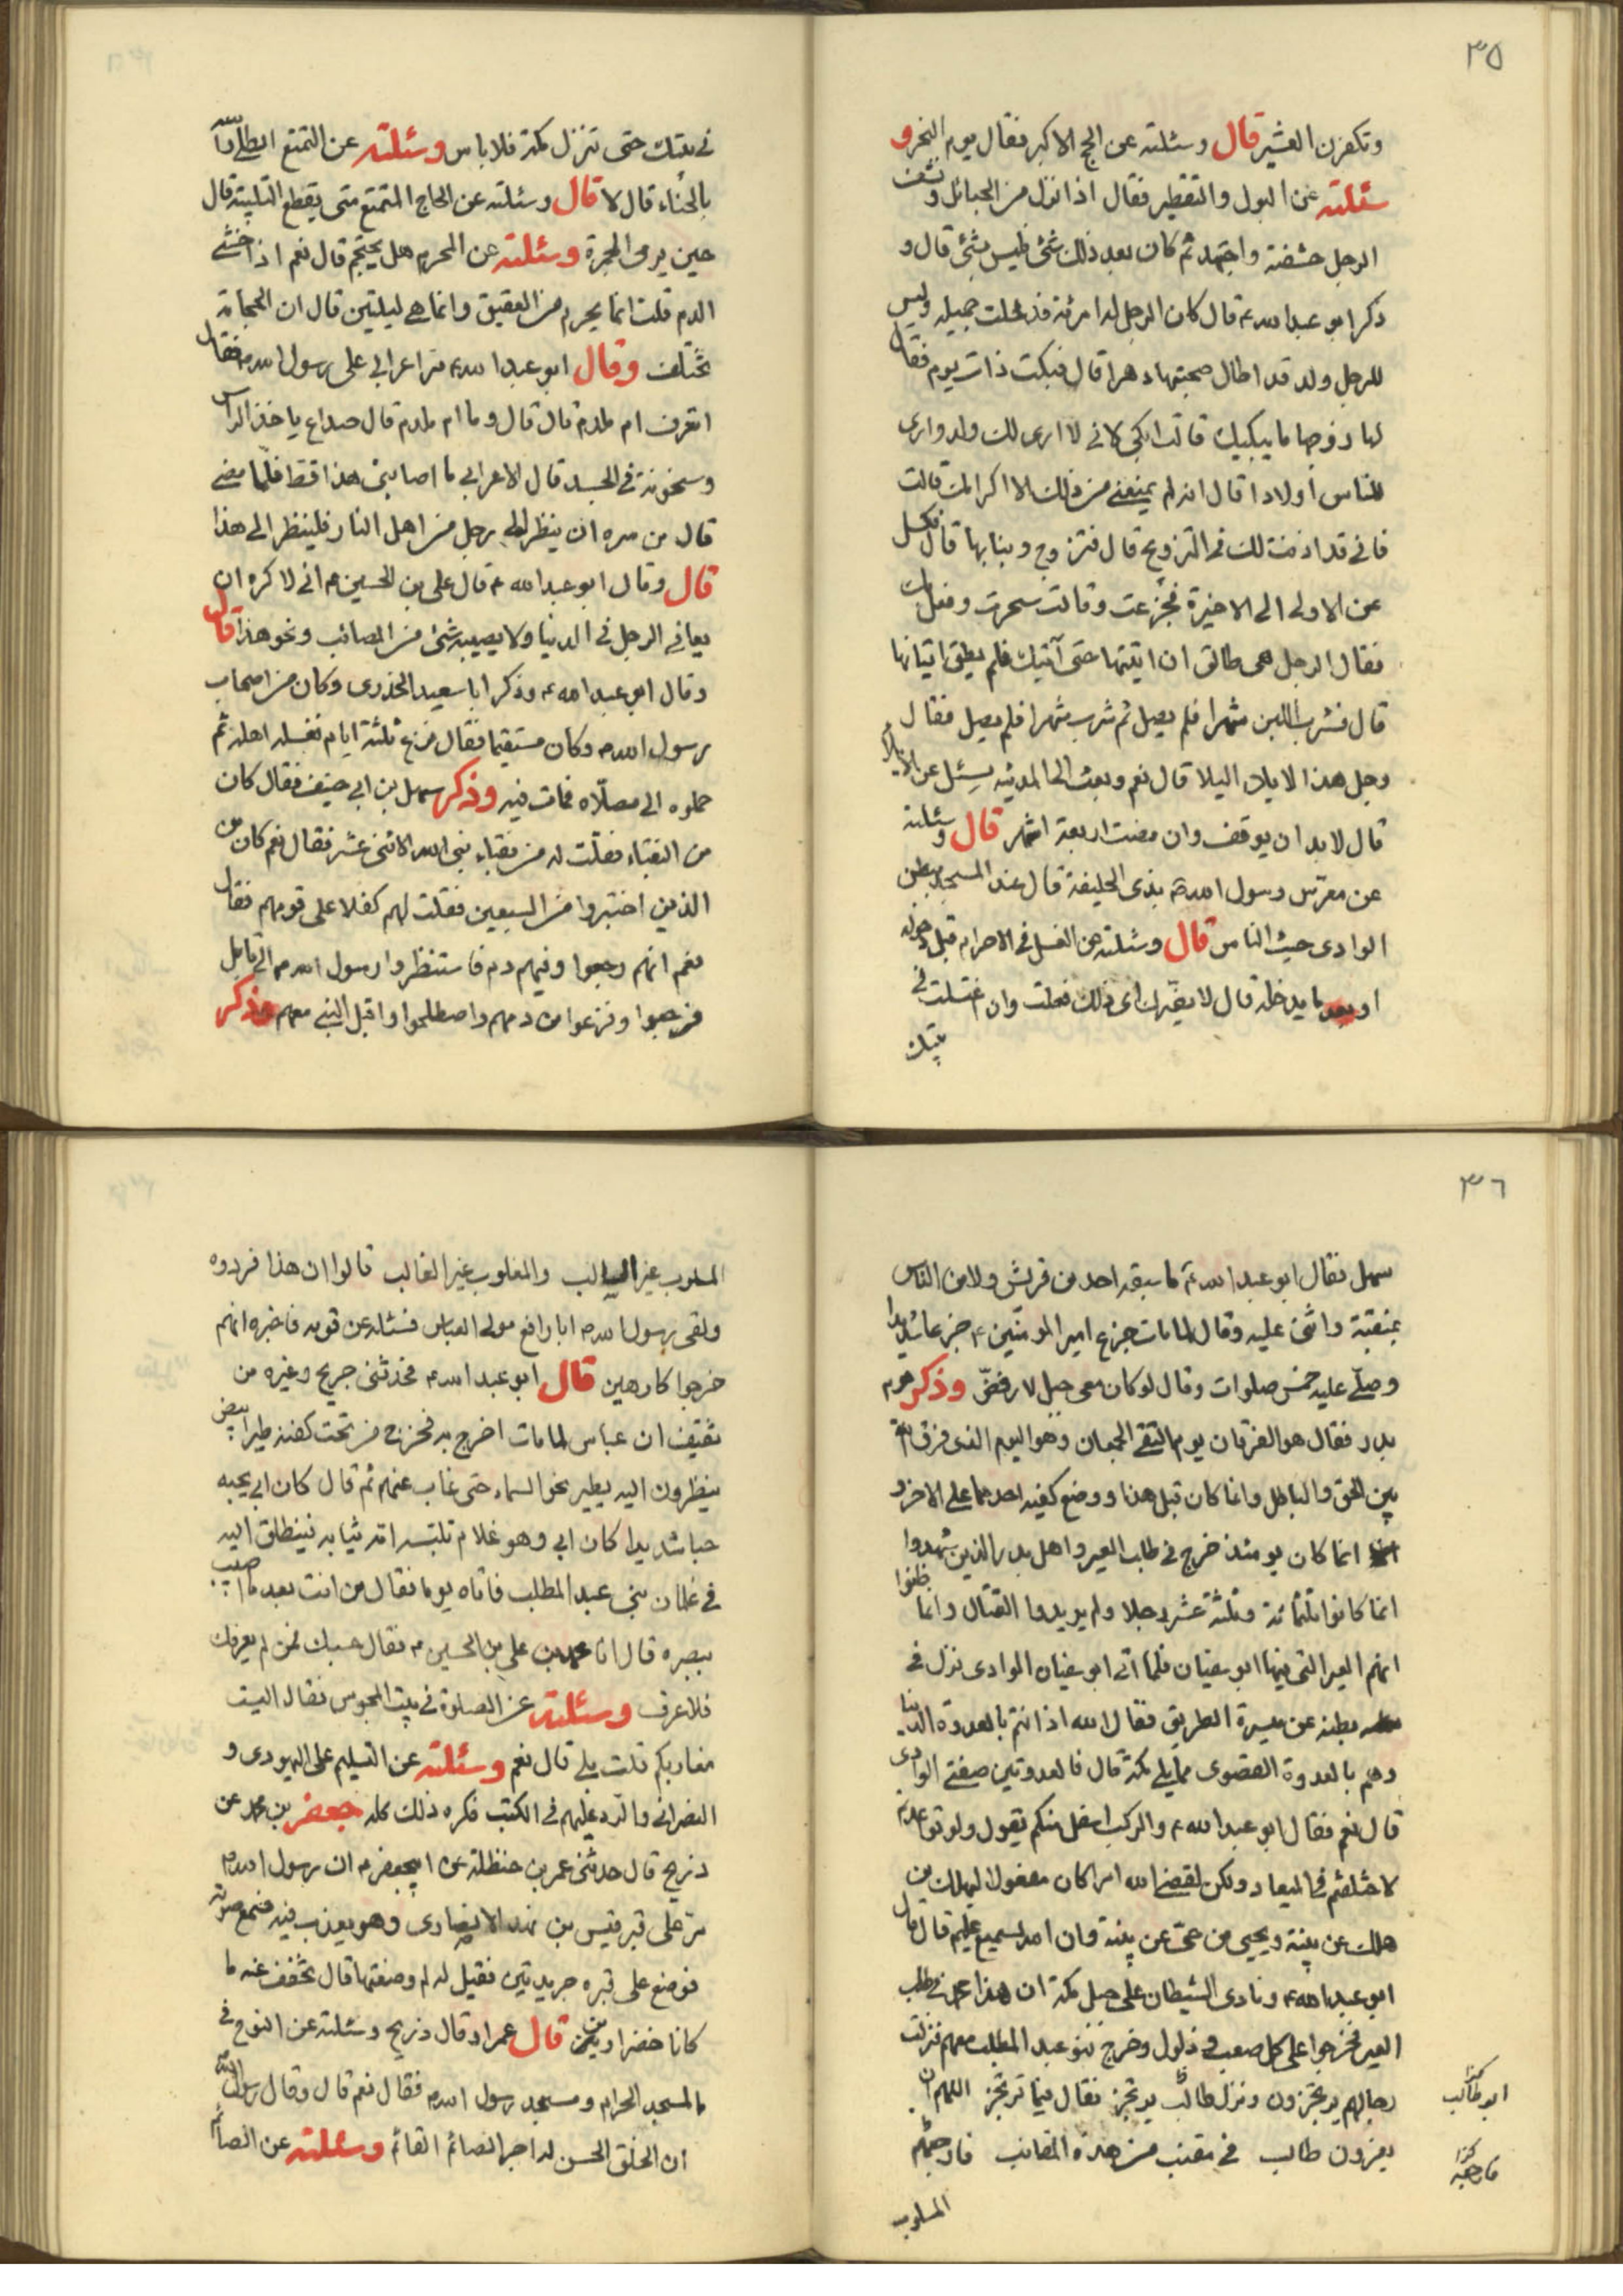 ٣٥
وتكفرن العشير قال وسئلته عن الحج الاكبر فقال يوم النحر و
سئلته عن البول والتقطير فقال اذا نزل من الحبائل ونشف
الرجل حشفته واجتهد ثم كان بعد ذلك شئ فليس بشئ قال و
ذكر ابو عبد الله ع قال كان الرجل له امرئة قد جميله وليس
للرجل ولد قد اطال صحبتها دهرا قال فبكت ذات يوم فقال
لها زوجها ما يبكيك قالت ابكى لانى لا ارى لك ولد وارى
للناس أولادا قال انه لم يمنعنى من ذلك الا اكرامك قالت
فانى قد اذنت لك فى التزويج قال فتزوج وبنا بها قال فكسل
عن الاولى الى الاخيرة فجزعت وقالت سحرت وفعلت
فقال الرجل هى طالق ان اتيتها حتى آتيك فلم يطق اتيانها
قال فشرب اللبن شهرا فلم يصل ثم شرب شهرا فلم يصل فقال
رجل هذا الايلاء اليلا قال نعم وبعث الى المدينه يسئل عن الايلاء
قال لا بد ان يوقف وان مضت اربعة اشهر قال وسئلته
عن معرّس رسول الله ص بذى الحليفة قال عند المسجد ببطن
الوادى حيث الناس قال وسئلته عن الغسل فى الاحرام قبل دخوله
او بعد ما يدخله قال لا يضرك اى ذلك فعلت وان اغتسلت فى
بيتك
فى بيتك حتى تنزل مكة فلا باس وسئلته عن التمتع ايطلى راسه
بالحناء قال لا قال وسئلته عن الحاج المتمتع متى يقطع التلبية قال
حين يرمى الجمرة وسئلته عن المحرم هل يحتجم قال نعم اذا خشى
الدم قلت انما يحرم من العقيق وانما هى ليلتين قال ان الحجامة
تختلف وقال ابو عبد الله ع مر اعرابى على رسول الله ص فقال
اتعرف ام ملدم قال قال وما ام ملدم قال صداع ياخذ الراس
وسخونة فى الجسد قال الاعرابى ما اصابنى هذا قط فلما مضى
قال من سره ان ينظر الى رجل من اهل النار فلينظر الى هذا
قال وقال ابو عبد الله ع قال على بن الحسين ع انى لاكره ان
يعافى الرجل فى الدنيا ولا يصيبه شئ من المصائب ونحو هذا قال
وقال ابو عبد الله ع وذكر ابا سعيد الخذرى وكان من اصحاب
رسول الله ص وكان مستقيما فقال نزع ثلثة ايام فغسله اهله ثم
حملوه الى مصلّاه فمات فيه وذكر سهل بن ابى حنيف فقال كان
من النقباء فقلت له من نقباء نبى الله الاثنى عشر فقال نعم كان من
الذين اختيروا من السبعين فقلت لهم كفلا على قومهم فقال
نعم انهم رجعوا وفيهم دم فاستنظروا رسول الله ص الى قابل
فرجعوا وفزعوا من دمهم واصطلحوا واقبل النبى معهم وذكر
٣٦
سهل فقال ابو عبد الله ع ما سبقه احد من قريش ولا من الناس
بمنقبة واثنى عليه وقال لما مات جزع امير المؤمنين ع جزعا شديدا
وصلّى عليه خمس صلوات وقال لو كان معى جبل لارفضّ وذكر يوم
بدر فقال هو الفرقان يوم التقى الجمعان وهو اليوم الذى فرق الله
بين الحق والباطل وانما كان قبل هذا ووضع كفيه احدهما على الاخر و
انما كان يومئذ خرج فى طلب العير واهل بدر الذين شهدوا
انما كانوا ثلثمائة وثلثة عشر رجلا ولم يريدوا القتال وانما ظنوا
انهم العير التى فيها ابو سفيان فلما اتى ابو سفيان الوادى نزل فى
بطنه عن ميسرة الطريق فقال الله اذ انتم بالعدوة الدنيا
وهم بالعدوة القصوى مما يلى مكة قال فالعدوتين ضفتى الوادى
قال نعم فقال ابو عبد الله ع والركب اسفل منكم يقول ولو تواعدتم
لاختلفتم فى الميعاد ولكن ليقضى الله امرا كان مفعولا ليهلك من
هلك عن بينة ويحيى من حى عن بينة وان الله لسميع عليم قال قال
ابو عبد الله ع ونادى الشيطان على جبل مكة ان هذا محمد فى طلب
العير فخرجوا على كل صعب وذلول وخرج بنو عبد المطلب معهم فنزلت
رجالهم يرتجزون ونزل طالب يرتجز فقال فيما ترتجز اللهم ان
يغزون طالب فى مقنب من هذه المقانب فارجعهم
ابو طالب كذا
فارجعه كذا
المسلوب
المسلوب غير السالب والمغلوب غير الغالب قالوا ان هذا فردوه
ولقى رسول الله ص ابا رافع مولى العباس فسئله عن قومه فاخبره انهم
خرجوا كارهين قال ابو عبد الله ع فحدثنى جريح وغيره من
ثقيف ان عباس لما مات اخرج به فخرج من تحت كفنه طير ابيض
ينظرون اليه يطير نحو السماء حتى غاب عنهم ثم قال كان ابى يحبه
حبا شديدا كان ابى وهو غلام تلبسه امه ثيابه فينطلق اليه
فى غلمان بنى عبد المطلب فاتاه يوما فقال من انت بعد ما اصيب
ببصره قال انا محمد بن على بن الحسين ع فقال حسبك فمن لم يعرفك
فلا عرف وسئلته عن الصلوة فى بيت المجوس فقال اليست
مغاربكم قلت بلى قال نعم وسئلته عن التسليم على اليهودى و
النصرانى والرد عليهم فى الكتب فكره ذلك كله جعفر بن محمد عن
ذريح قال حدثنى عمر بن حنظلة عن ابى جعفر ع ان رسول الله ص
مرّ على قبر قيس بن فهد الانصارى وهو يعذب فيه فسمع صوته
فوضع على قبره جريدتين فقيل له لم وضعتها قال تخفف عنه ما
كانا خضراوين قال عمر اد قال ذريح وسئلته عن النوح فى
المسجد الحرام ومسجد رسول الله ص فقال نعم قال وقال رسول الله ص
ان الخلق الحسن له اجر الصائم القائم وسئلته عن الصائم